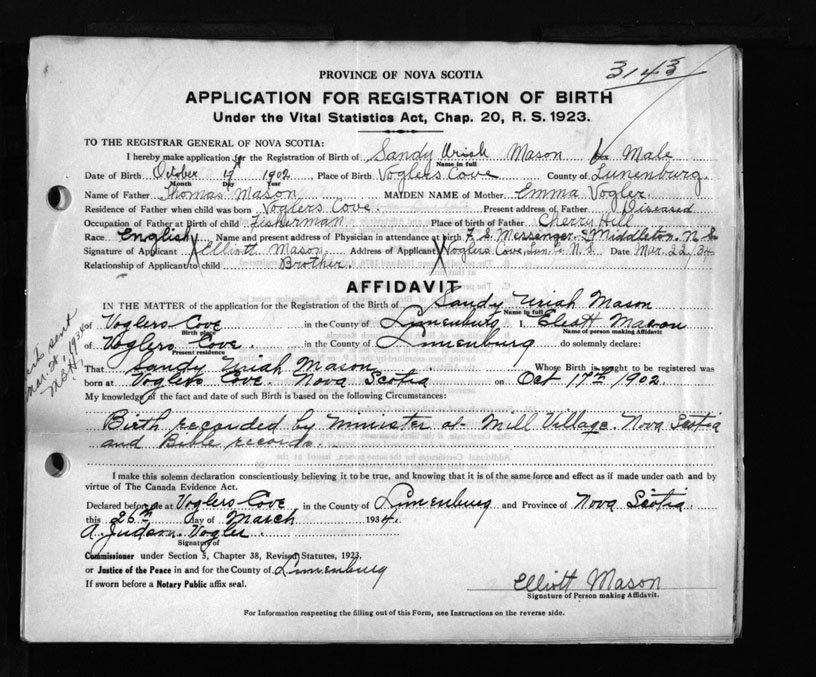 3143
PROVINCE OF NOVA SCOTIA
APPLICATION FOR REGISTRATION OF BIRTH
Under the Vital Statistics Act, Chap. 20, R. S. 1923.
TO THE REGISTRAR GENERAL OF NOVA SCOTIA:
I hereby make application for the Registration of Birth of Sandy Uriah Mason Sex Male
Name in full
Date of Birth October 17 1902 Place of Birth Voglers Cove County of Lunenburg.
Month Day Year
Name of Father Thomas Mason MAIDEN NAME of Mother Emma Vogler
Residence of Father when child was born Voglers Cove. Present address of Father Diseased
Occupation of Father at Birth of child Fisherman Place of birth of Father Cherry Hill
Race English Name and present address of Physician in attendance at birth F. S. Messenger, Middleton, N. S.
Signature of Applicant Elliott Mason Address of Applicant Voglers Cove, Lun. Co. N. S. Date Mar. 22/34
Relationship of Applicant to child Brother.
AFFIDAVIT
IN THE MATTER of the application for the Registration of the Birth of Sandy Uriah Mason
Name in full
of Voglers Cove in the County of Lunenburg I, Eliott Mason
Birth place Name of person making Affidavit
of Voglers Cove. in the County of Lunenburg do solemnly declare:
Present residence
That Sandy Uriah Mason Whose Birth is sought to be registered was
born at Voglers Cove. Nova Scotia on Oct 17th 1902.
My knowledge of the fact and date of such Birth is based on the following Circumstances:
Birth recorded by Minister at Mill Village. Nova Scotia
and Bible records.
sent
Mar. 28, 1934
I make this solemn declaration conscientiously believing it to be true, and knowing that it is of the same force and effect as if made under oath and by
virtue of The Canada Evidence Act.
Declared before me at Voglers Cove, in the County of Lunenburg and Province of Nova Scotia.
this 26th day of March 1934.
A. Judson Vogler.
Signature of
Commissioner under Section 5, Chapter 38, Revised Statutes, 1923,
or Justice of the Peace in and for the County of Lunenburg
If sworn before a Notary Public affix seal.
Elliott Mason
Signature of Person making Affidavit.
For Information respecting the filling out of this Form, see Instructions on the reverse side.